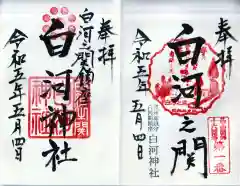 奉拝
白河之関鎮座
白河神社
令和五年五月四日
奉拝
白河之関
白河神社
令和五年五月四日